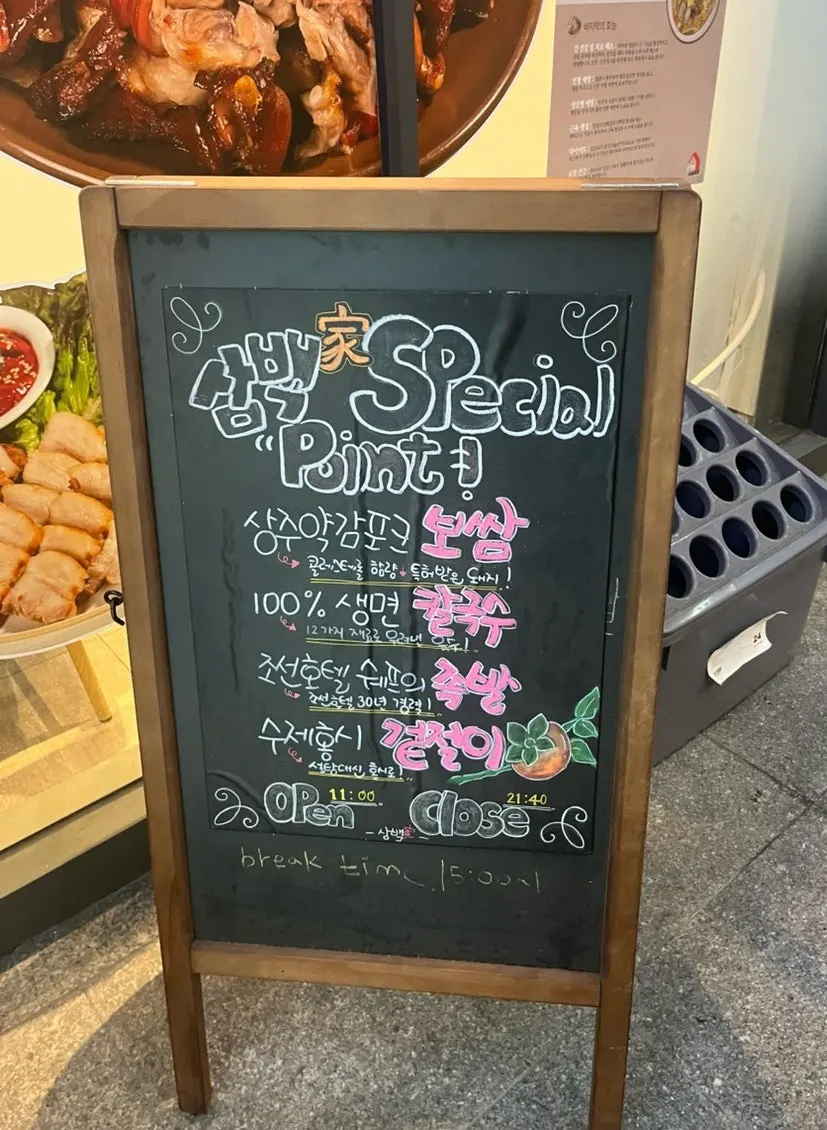 바지락의 효능
삼백家 Special
"Point!"
상주약감포크 보쌈
콜레스테롤 함량↓ 특허받은 돼지!
100% 생면 칼국수
12가지 재료로 우려낸 육수!
조선호텔 쉐프의 족발
조선호텔 30년 경력!
수제홍시 겉절이
설탕대신 홍시로!
Open 11:00 Close 21:40
-삼백家-
break time 15:00
24